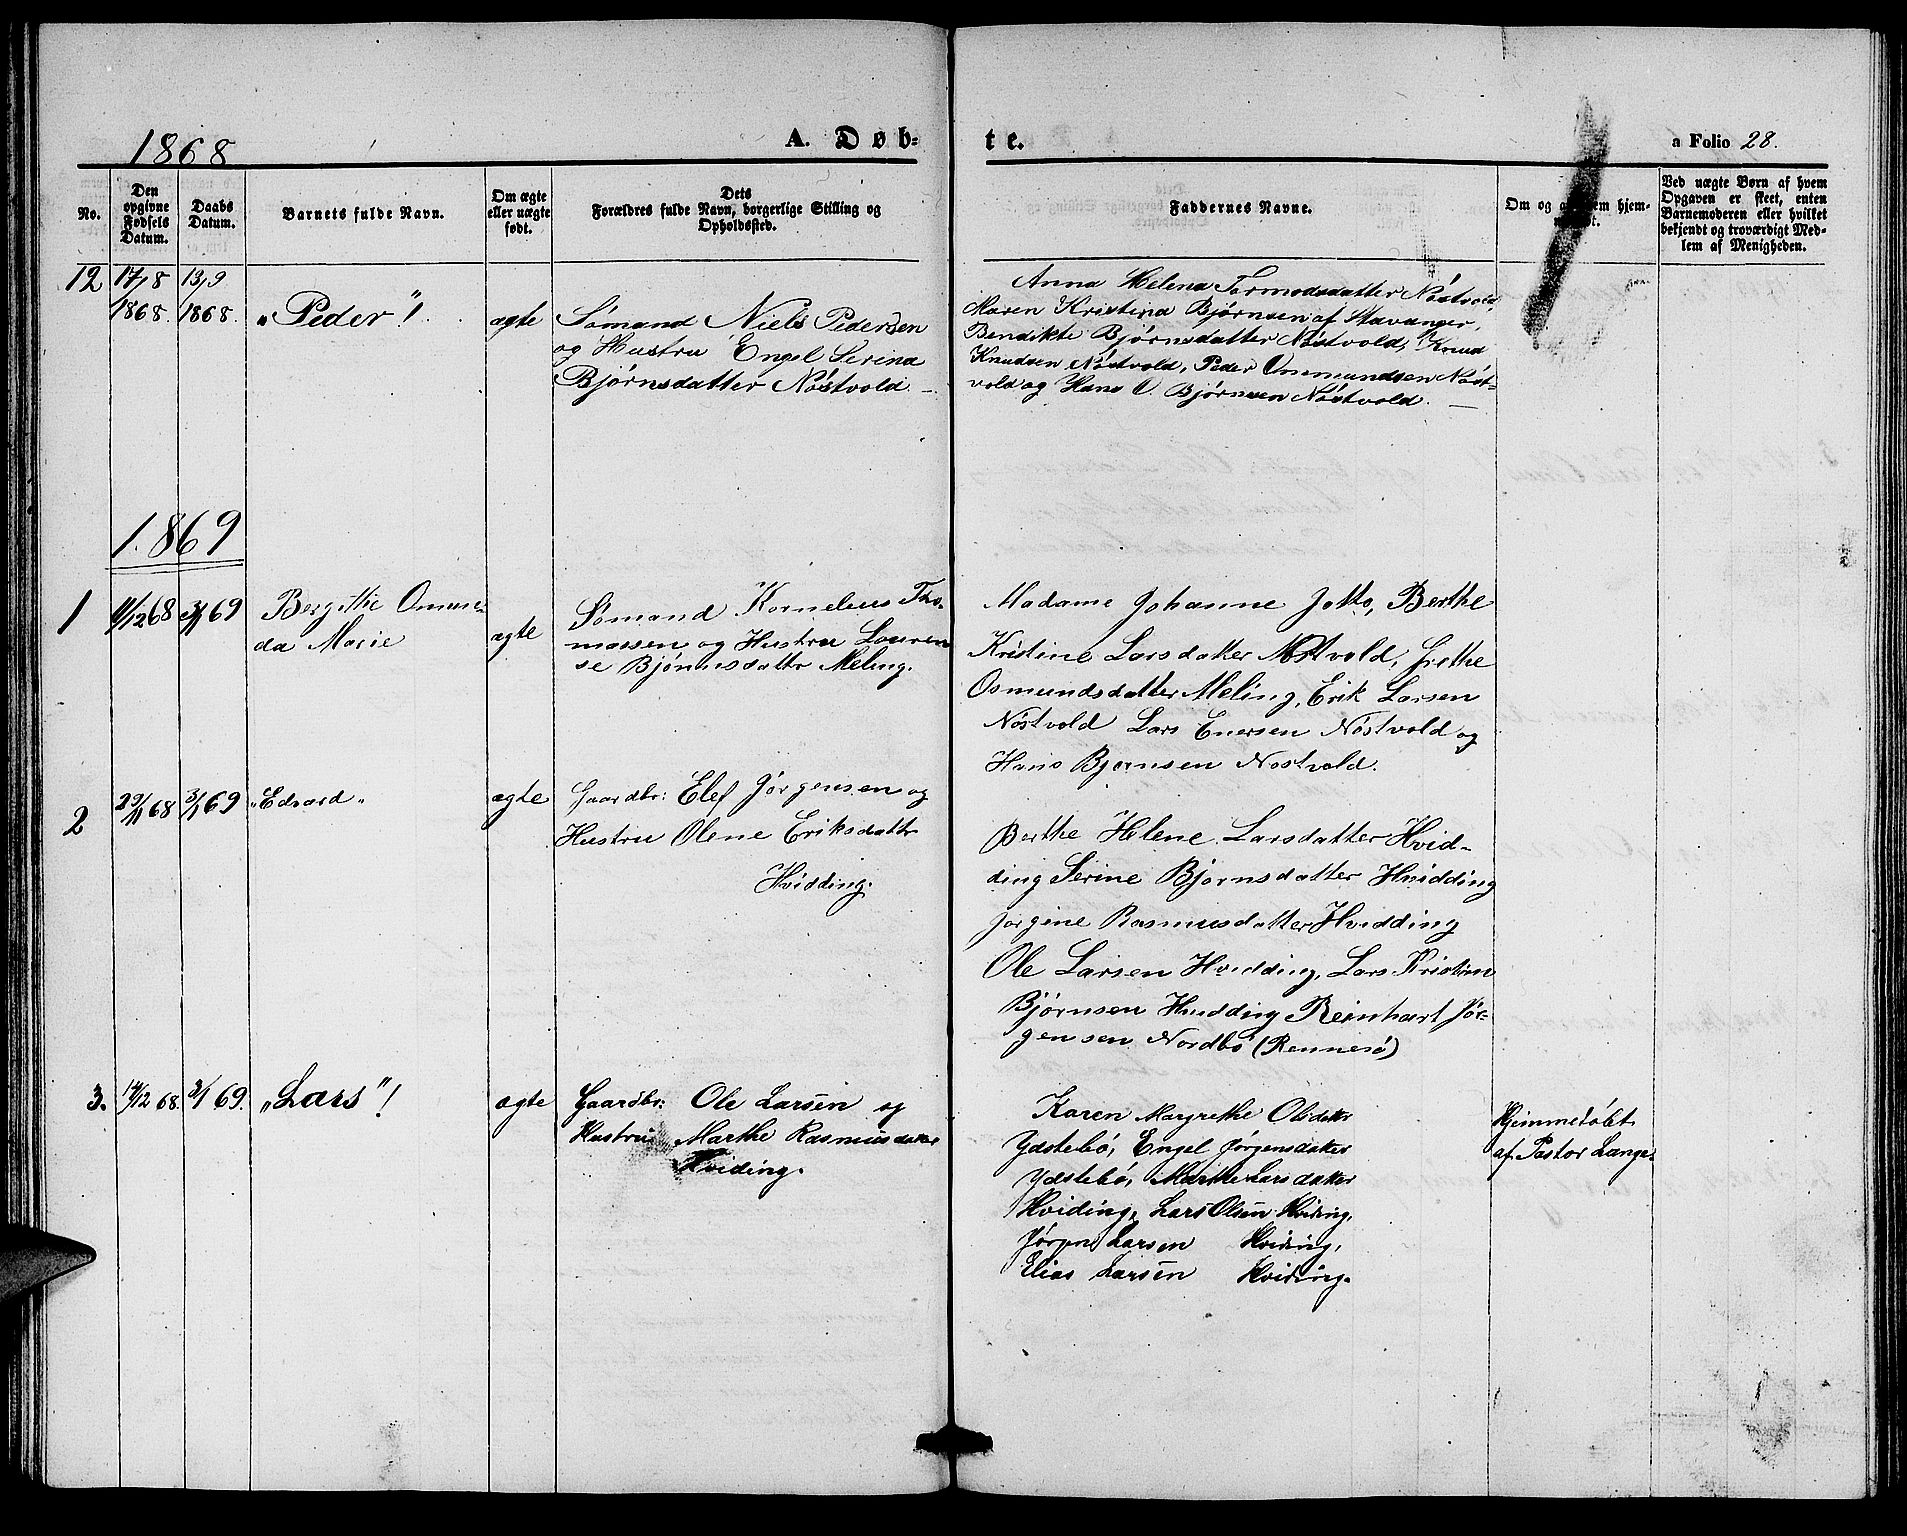 1868
A. Døb-
te.
a Folio 28.
No.
Den opgivne Fødsels Datum.
Daabs Datum.
Barnets fulde Navn.
Om ægte eller uægte født.
Dets Forældres fulde Navn, borgerlige Stilling og Opholdssted.
Faddernes Navne.
Om og af hvem hjem-
Ved uægte Børn af hvem Opgaven er skeet, enten Barnemoderen eller hvilket bekjendt og troværdigt Medlem af Menigheden.
12
17/8 1868.
13/9 1868.
"Peder"!
ægte
Sømand Niels Pedersen
og Hustru Engel Serina
Bjørnsdatter Nöstvold –
Anna Helena Tormodsdatter Nöstvold
Maren Kristina Bjørnsen af Stavanger,
Bendikte Bjørnsdatter Nöstvold, Knud
Knudsen Nöstvold, Peder Osmundsen Nöst-
vold og Hans O. Bjørnsen Nöstvold. –
1869
1
11/12 68
3/1 69
Bergithe Osmun-
da Marie
ægte
Sømand Kornelius Tho-
massen og Hustru Lauren
se Bjørnsdattr Meling.
Madame Johanne Jotto, Berthe
Kristine Larsdatter Nöstvold, Grethe
Osmundsdatter Meling, Erik Larsen
Nöstvold Lars Enersen Nöstvold og
Hans Bjørnsen Nöstvold.
2
29/11 68
3/1 69
"Edvard"
ægte
Gaardbr: Elef Jørgensen og
Hustru Olene Eriksdattr
Hvidding.
Berthe Helene Larsdatter Hvid-
ding Serine Bjørnsdatter Hvidding
Jørgine Rasmusdatter Hvidding
Ole Larsen Hvidding, Lars Kristian
Bjørnsen Hvidding Reinhart Jør-
gensen Nordbö (Rennesö)
3.
14/12 68.
3/1 69.
"Lars"!
ægte
Gaardbr: Ole Larsen og
Hustru Marthe Rasmusdatter
Hviding.
Karen Margrethe Olsdatter
Ydstebö, Engel Jørgensdatter
Ydstebö, Marthe Larsdatter
Hviding, Lars Olsen Hviding,
Jørgen Larsen Hviding,
Elias Larsen Hviding.
Hjemmedøbt
af Pastor Lange.